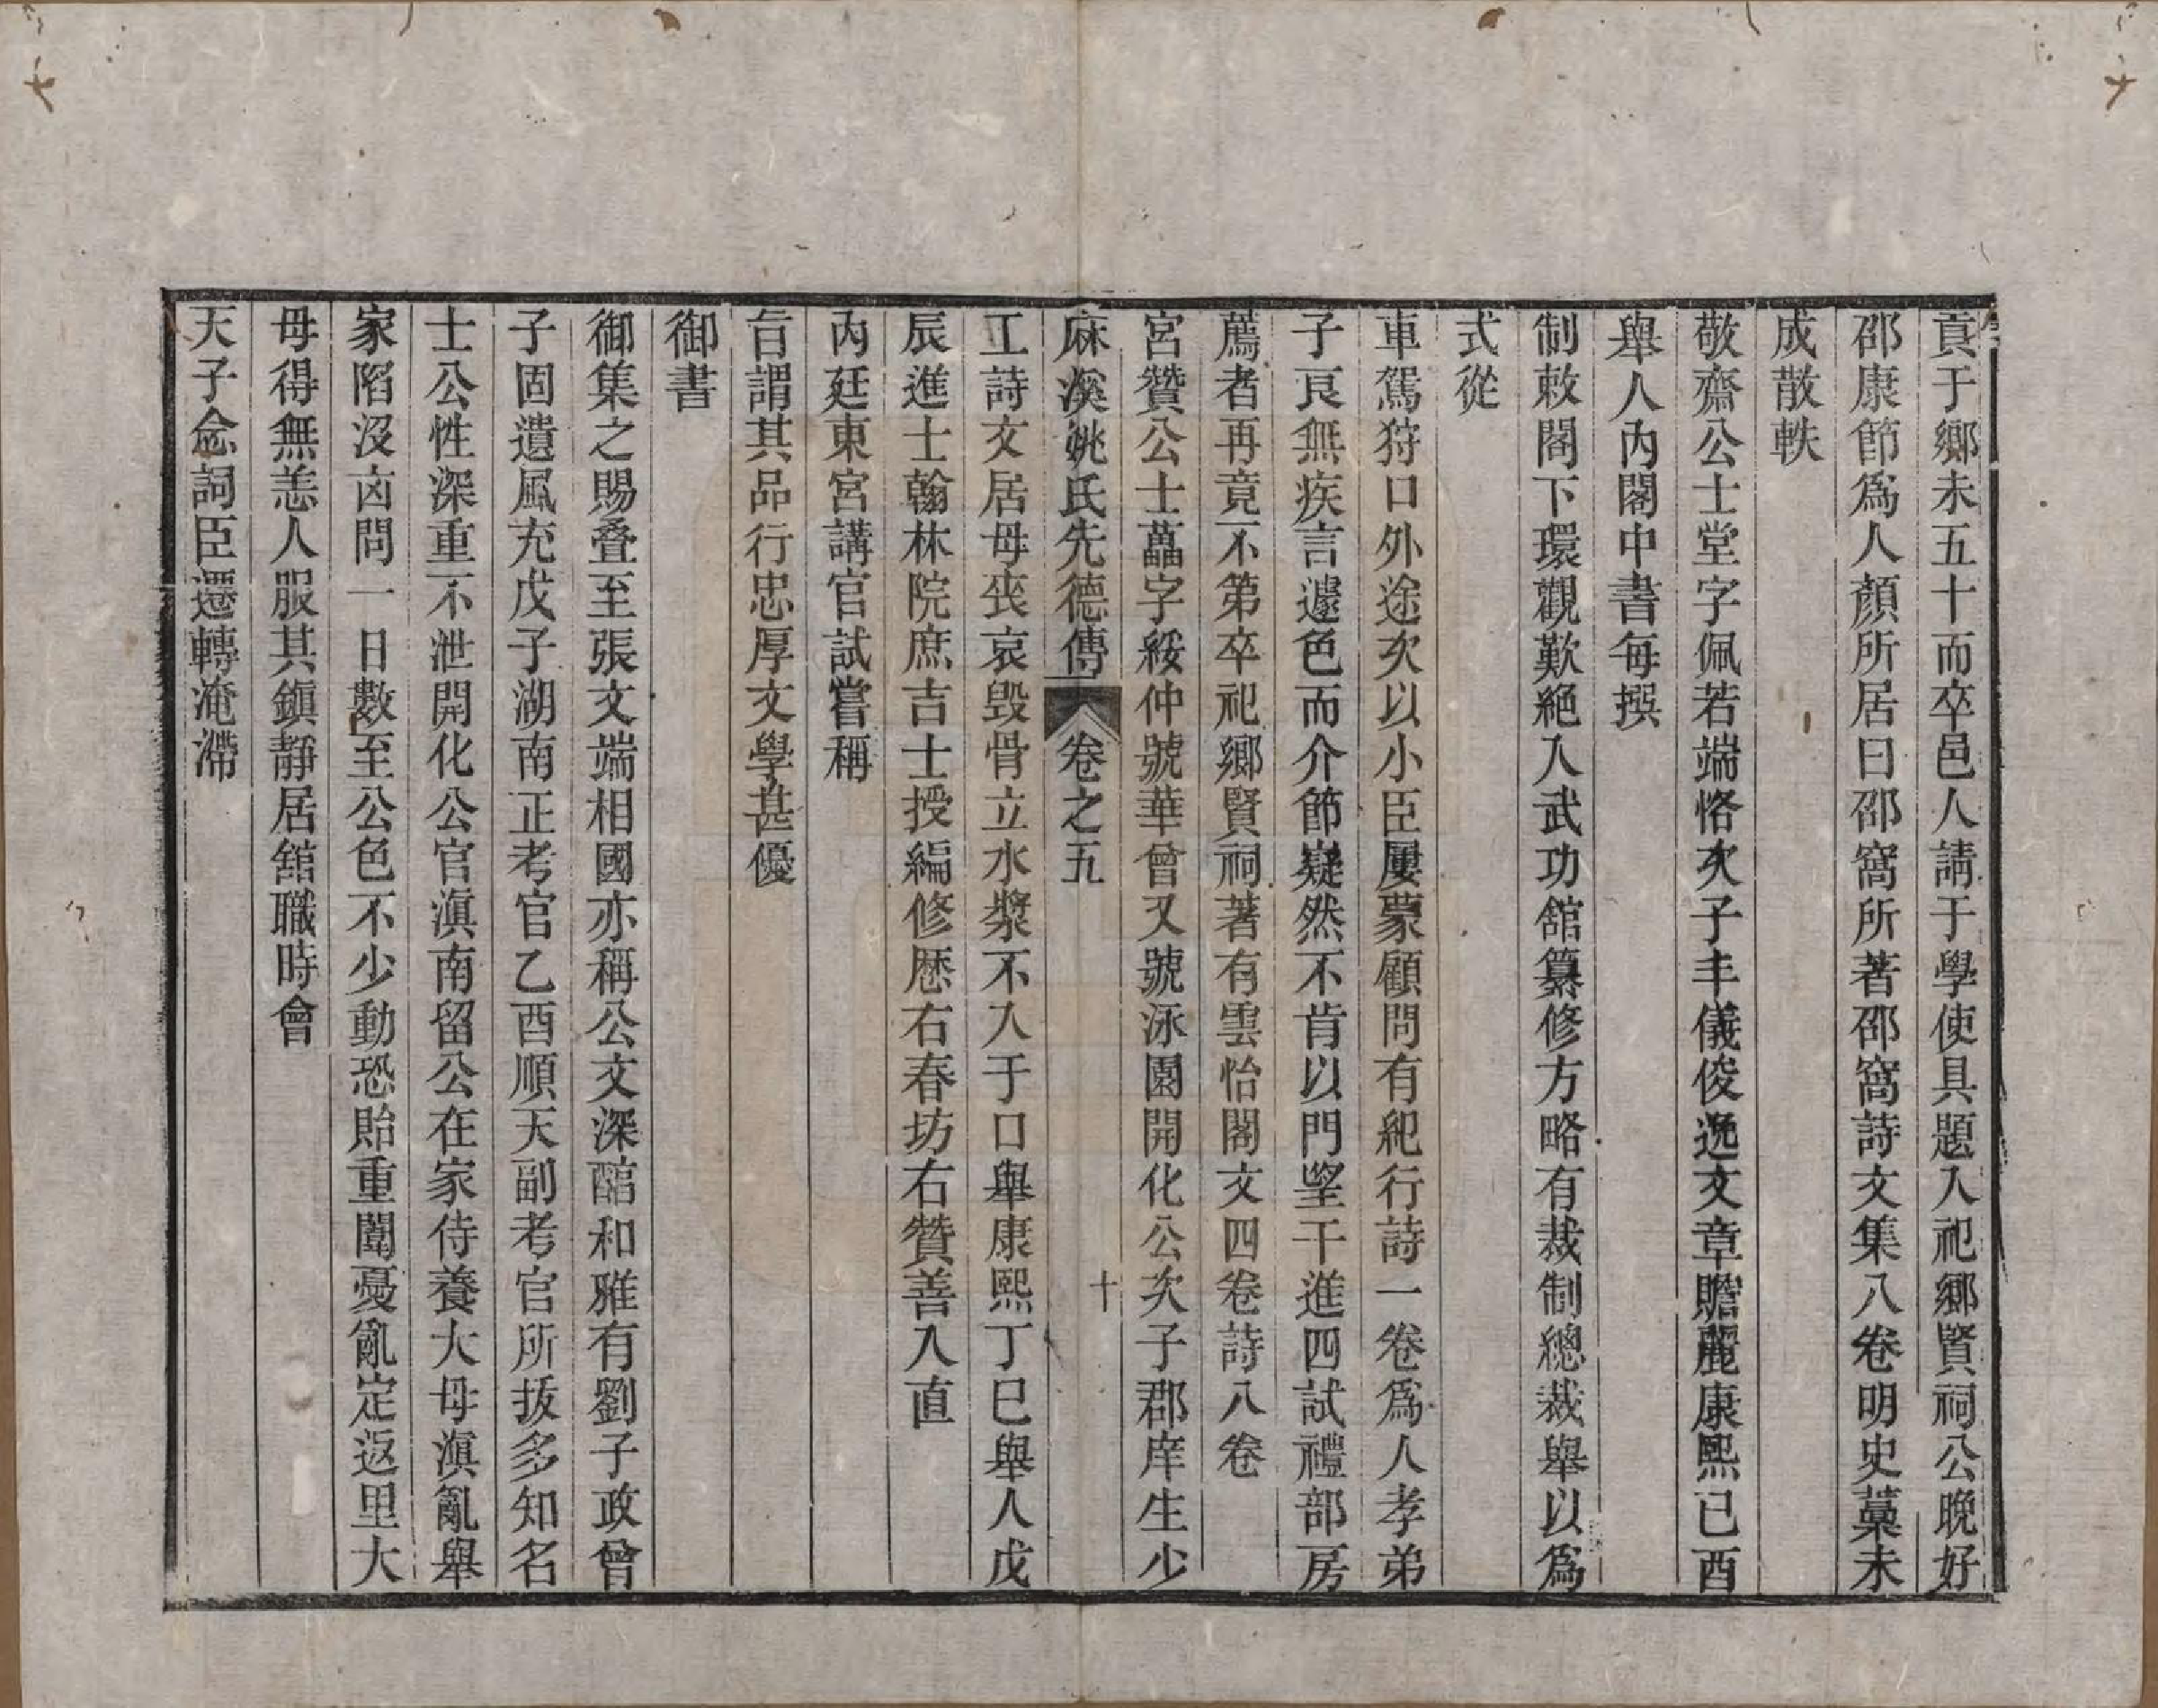 貢于鄉未五十而卒邑人請于學使具題入祀鄉賢祠公晚好
邵康節爲人顏所居曰邵窩所著邵窩詩文集八卷明史藳未
成散軼
敬齋公士堂字佩若端恪次子丰儀俊逸文章贍麗康熙已酉
舉人內閣中書每撰
制敕閣下環觀歎絕入武功舘纂修方略有裁制總裁舉以爲
式從
車駕狩口外途次以小臣屢蒙顧問有紀行詩一卷爲人孝弟
子良無疾言遽色而介節嶷然不肯以門望干進四試禮部房
薦者再竟不第卒祀鄉賢祠著有雲怡閣文四卷詩八卷
宮贊公士藟字綏仲號華曾又號泳園開化公次子郡庠生少
麻溪姚氏先德傳 卷之五 十
工詩文居母喪哀毀骨立水漿不入于口舉康熙丁巳舉人戊
辰進士翰林院庶吉士授編修歷右春坊右贊善入直
內廷東宮講官試嘗稱
旨謂其品行忠厚文學甚優
御書
御集之賜叠至張文端相國亦稱公文深醇和雅有劉子政曾
子固遺風充戊子湖南正考官乙酉順天副考官所拔多知名
士公性深重不泄開化公官滇南留公在家侍養大母滇亂舉
家陷沒凶問一日數至公色不少動恐貽重闈憂亂定返里大
母得無恙人服其鎭靜居舘職時會
天子念詞臣遷轉淹滯